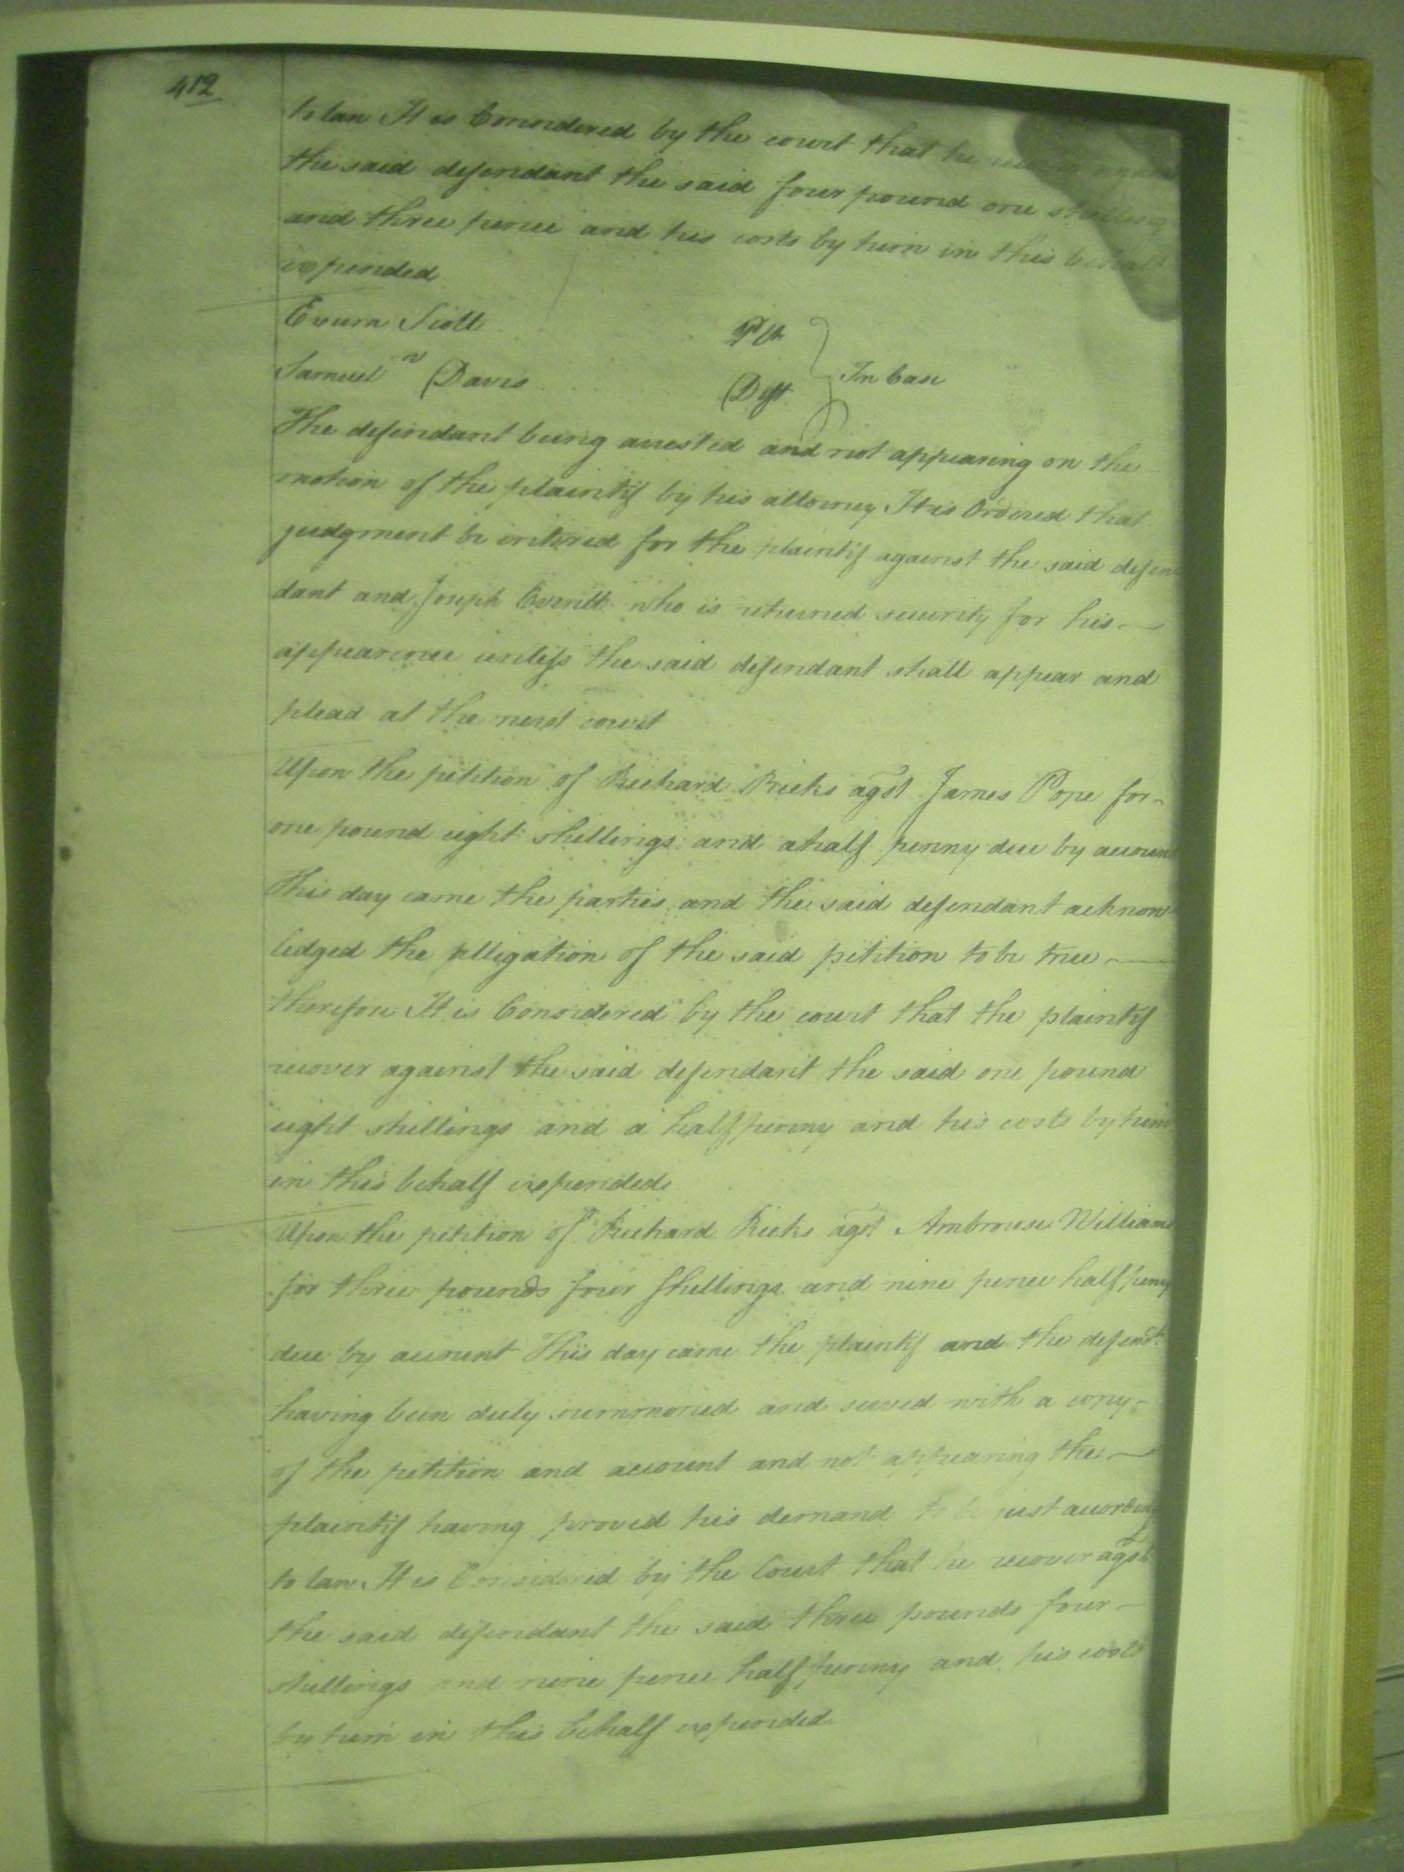 412
to law It is Considered by the court that he
the said defendant the said four pound one shilling
and three pence and his costs by him in this behalf
expended
Exum Scott Plt
v In Case
Samuel Davis Deft
The defendant being arrested and not appearing on the
motion of the plaintif by his attorney It is Ordered that
judgment be entered for the plaintif against the said defen
dant and Joseph Everitt who is returned security for his
appearance unless the said defendant shall appear and
plead at the next court
Upon the petition of Richard Ricks agst James Pope for
one pound eight shillings and a half penny due by account
This day came the parties and the said defendant acknow
ledged the alligation of the said petition to be true
therefore It is Considered by the court that the plaintif
recover against the said defendant the said one pound
eight shillings and a half penny and his costs by him
in this behalf expended
Upon the petition of Richard Ricks agst Ambrose Williams
for three pounds four shillings and nine pence half peny
due by account This day came the plaintif and the defendt
having been duly summoned and served with a copy
of the petition and account and not appearing the
plaintif having proved his demand to be just according
to law It is Considered by the Court that he recover agst
the said defendant the said three pounds four
shillings and nine pence half penny and his costs
by him in this behalf expended